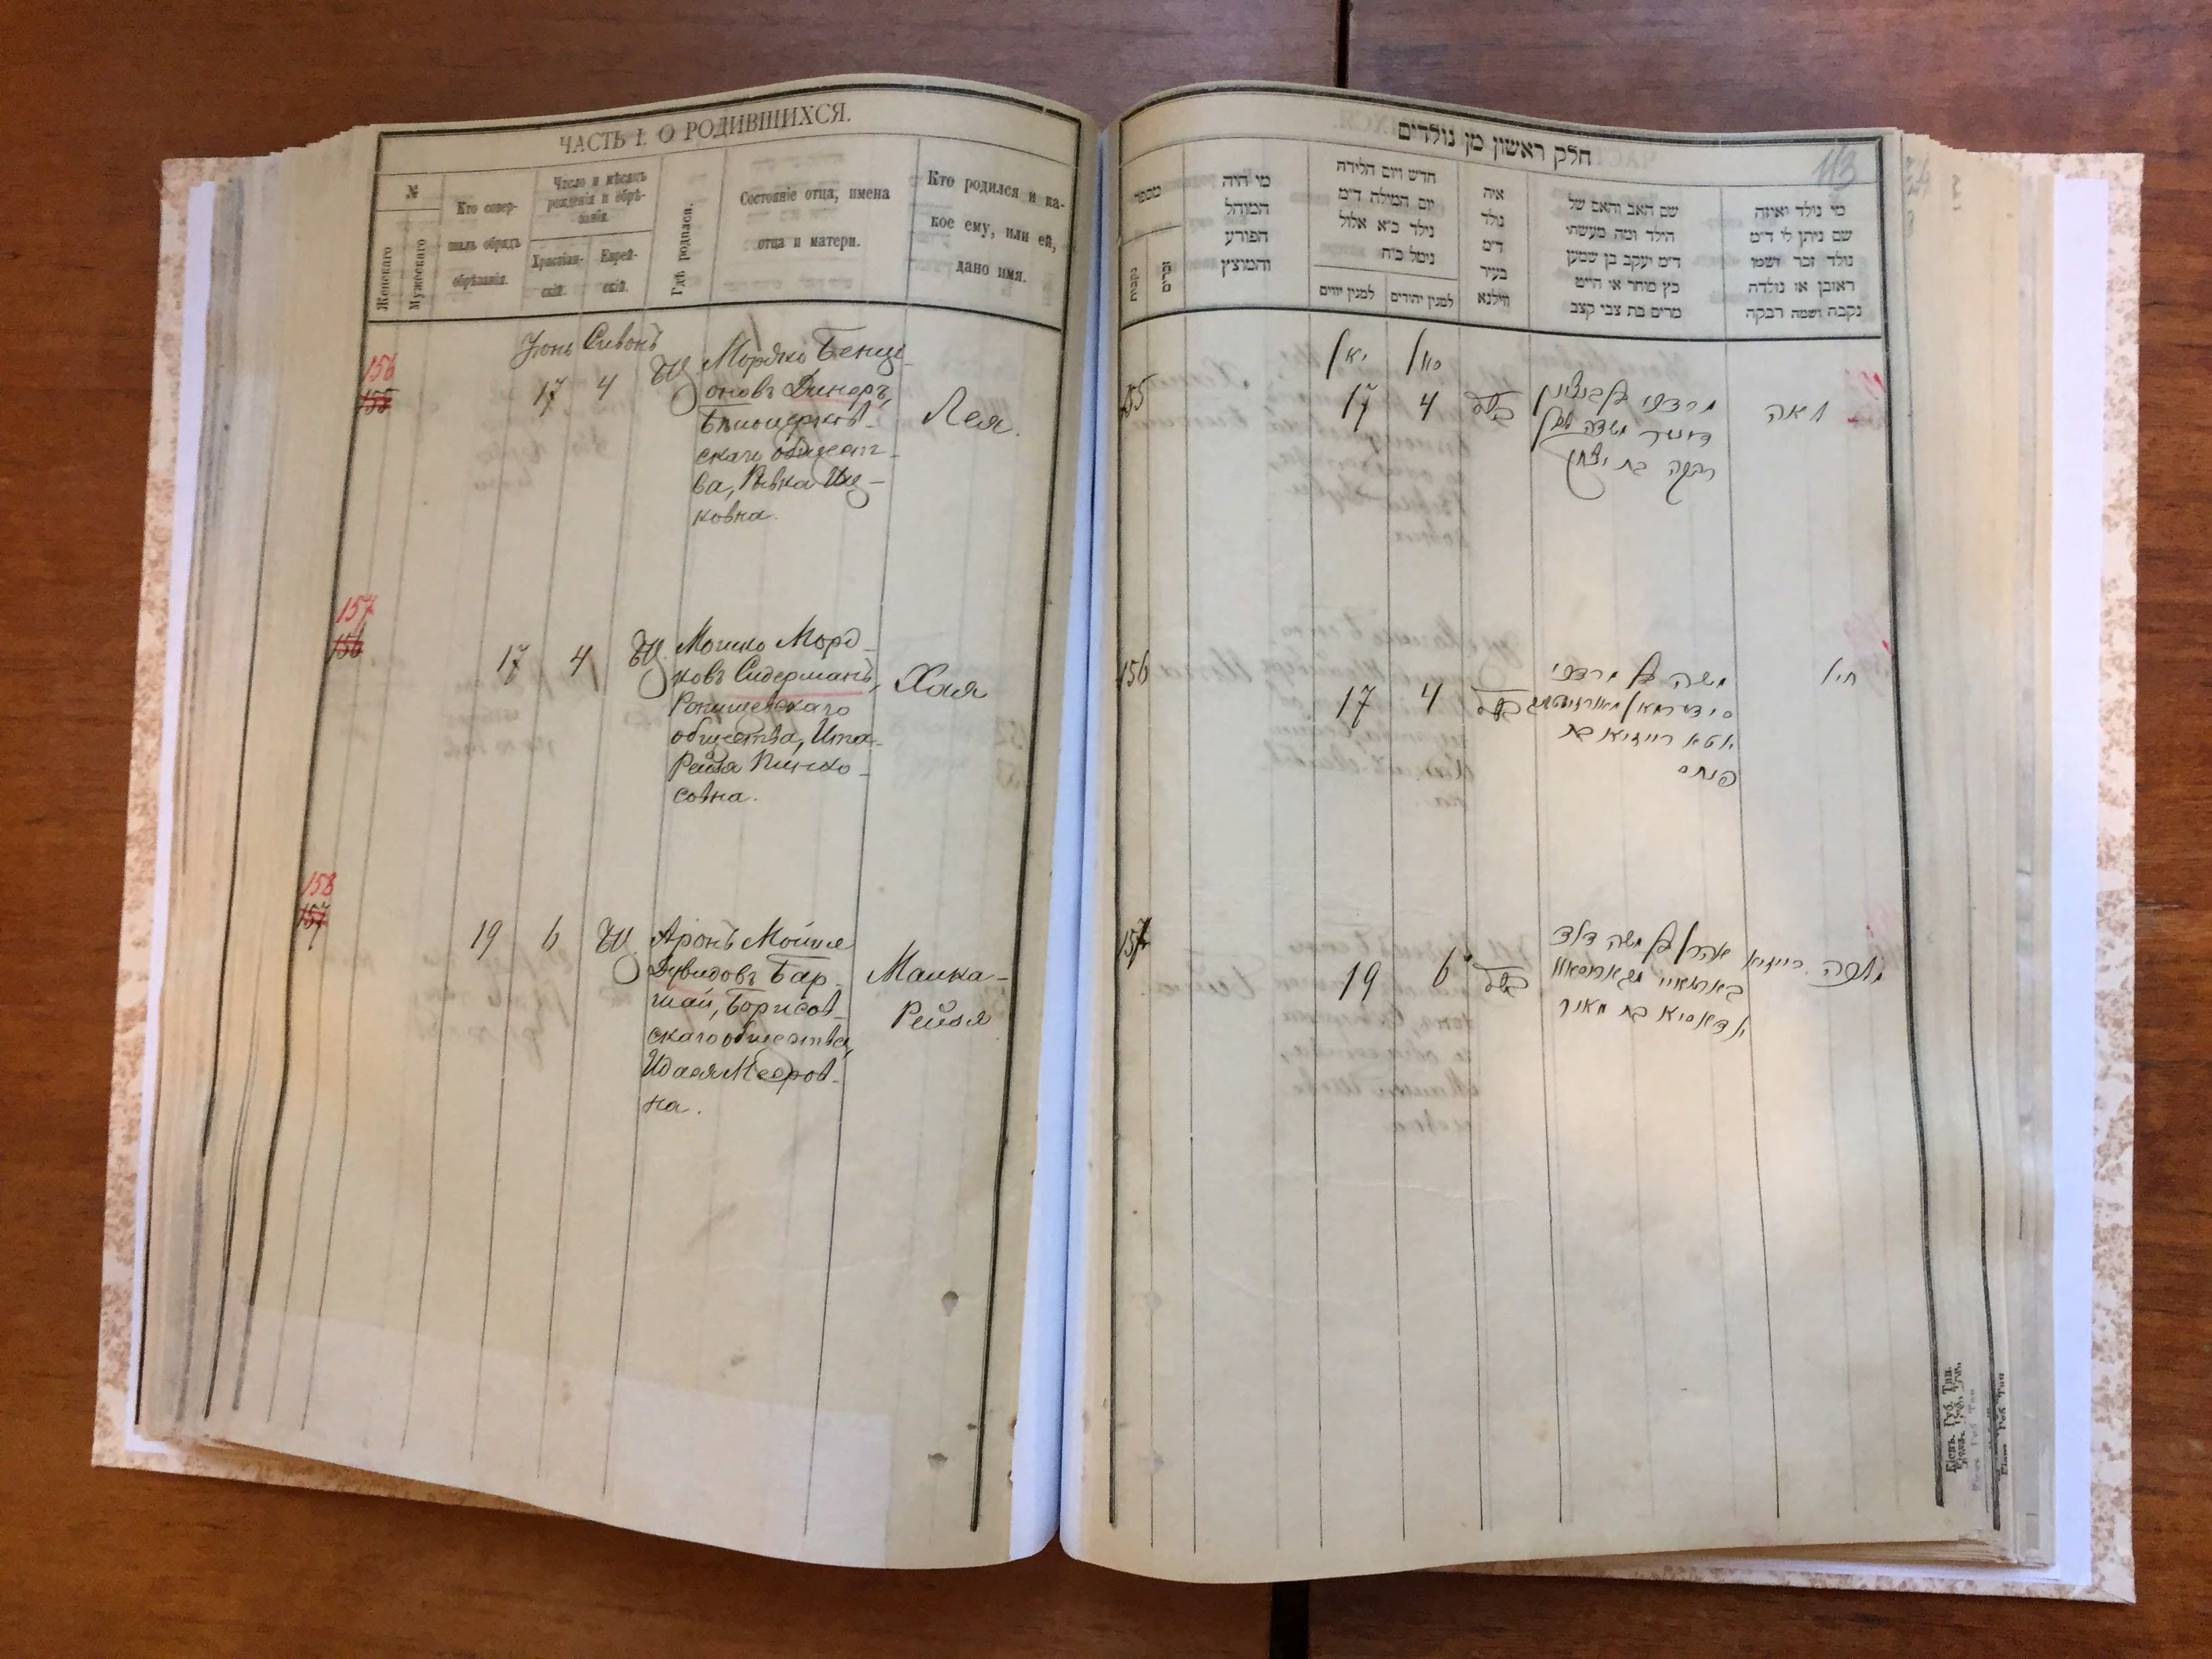 ЧАСТЬ I. О РОДИВШИХСЯ.
№
Женскаго
Мужескаго
Кто совер-
шалъ обрядъ
обрѣзанія.
Число и мѣсяцъ
рожденія и обрѣ-
занія.
Христіан-
скій.
Еврей-
скій.
Гдѣ родился.
Состояніе отца, имена
отца и матери.
Кто родился и ка-
кое ему, или ей,
дано имя.
Іюнь Сивонъ
156
155
17 4
Мордко Бенці-
оновъ Динеръ,
скаго общест-
ва, Ривка Иц-
ковна.
Лея.
157
156
17 4
Мошко Морд-
ковъ Сидерманъ,
общества, Ита-
Рейзя Пинхо-
совна.
Хая
158
157
19 6
Аронъ Мойше
Дувидовъ Бар-
шай, Борисов-
скаго общества,
Идася Меэров-
на.
Малка-
Рейзя
חלק ראשון מן נולדים
113
מספר
נקבות
זכרים
מי היה
המוהל
הפורע
והמוצץ
חדש ויום הלידה
יום המילת ד״מ
נילד כ״א אלול
נימל כ״ח
למנין יווים
למנין יהודים
איה
נולד
ד״מ
בעיר
ווילנא
שם האב והאם של
הילד ומה מעשתי
ד״מ יעקב בן שמען
כץ סוחר או הייט
מרים בת צבי קצב
מי נולד ואיזה
שם ניתן לו ד״מ
נולד זכר ושמו
ראובן או נולדה
נקבה ושמה רבקה
155
17 4
מרדכי בן בנציון
רבקה בת יצחק
לאה
156
17 4
משה בן מרדכי
סידערמאן
איטא רייזיא בת
פנחס
חיה
157
19 6
אהרן בן משה דוד
יודאסיא בת מאיר
מלכה רייזיא
Кіевъ. Губ. Тип.